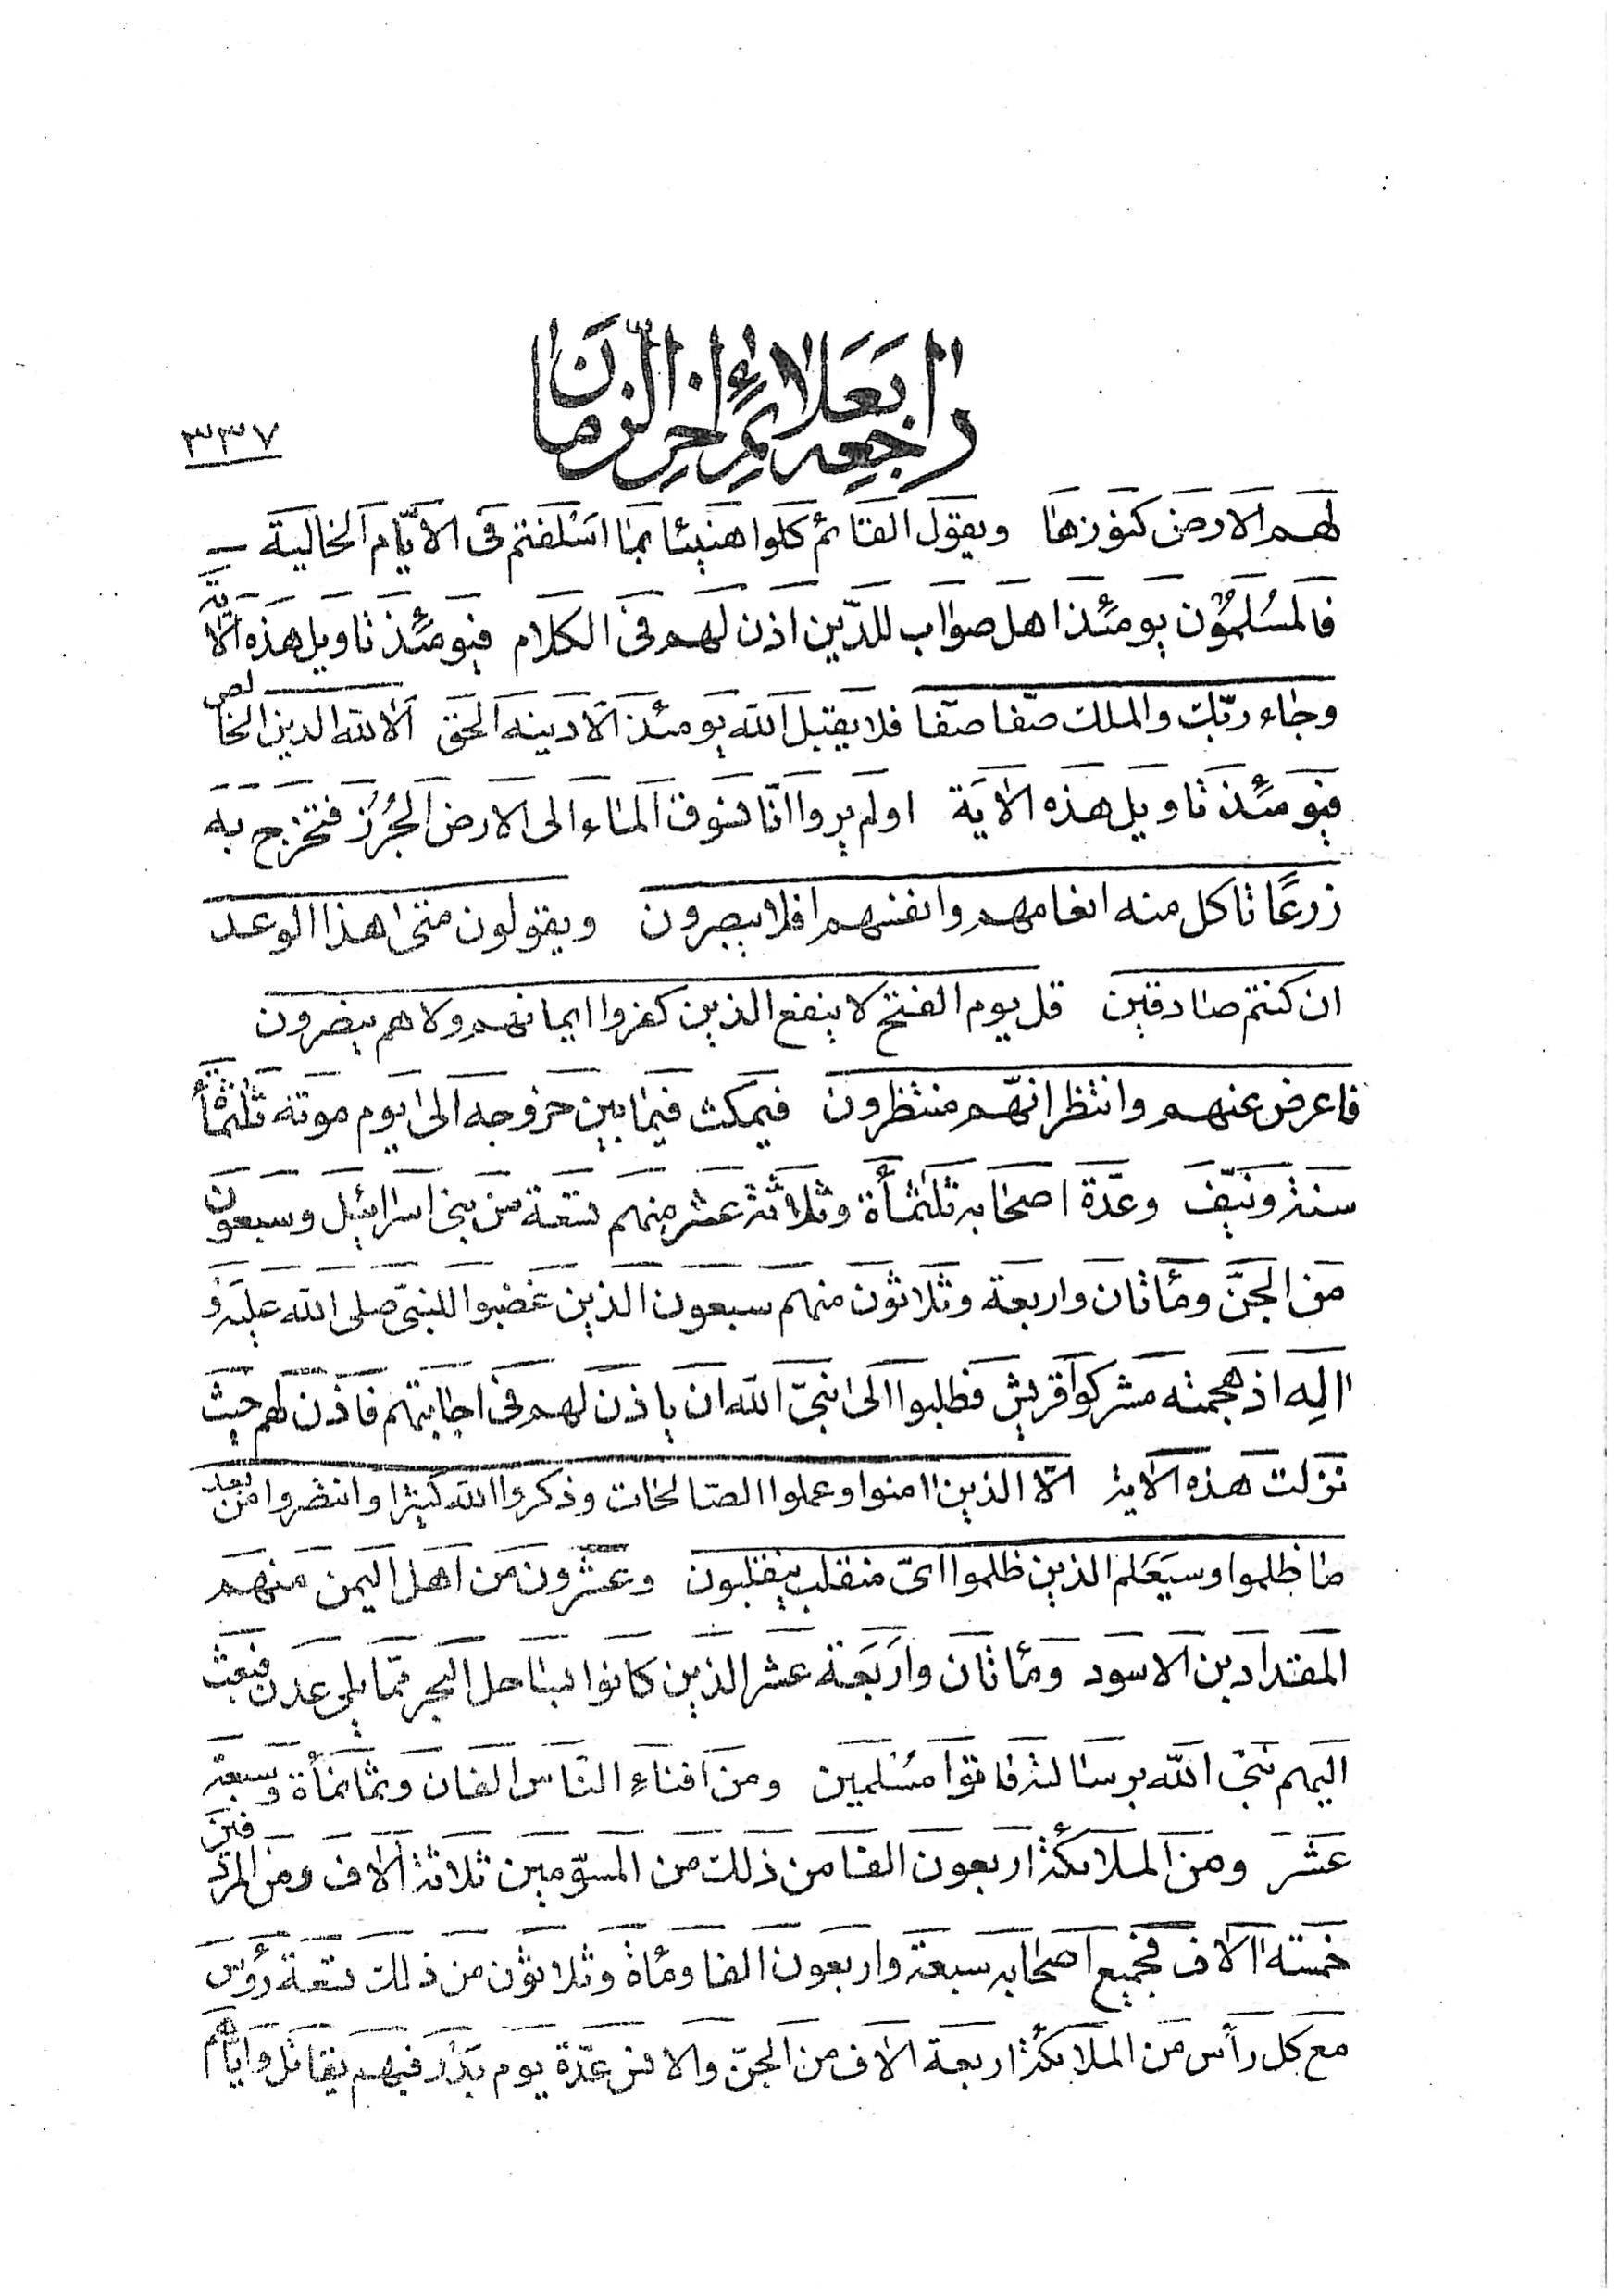 راجعه بعلائم اخر الزمان
٣٣٧
لهم الارض كنوزها ويقول القائم كلوا هنيئا بما اسلفتم فى الايّام الخالية
فالمسلمون يومئذ اهل صواب للدّين اذن لهم فى الكلام فيومئذ تاويل هذه الاية
وجاء ربّك والملك صفّا صفّا فلا يقبل الله يومئذ الّا دينه الحق الا لله الدين الخالص
فيومئذ تاويل هذه الاية اولم يروا انّا نسوق الماء الى الارض الجُرُز فنخرج به
زرعًا تاكل منه انعامهم وانفسهم افلا يبصرون ويقولون متى هذا الوعد
ان كنتم صادقين قل يوم الفتح لا ينفع الذين كفروا ايمانهم ولا هم ينصرون
فاعرض عنهم وانتظر انّهم منتظرون فيمكث فيما بين خروجه الى يوم موته ثلثمأة
سنة ونيّف وعدّة اصحابه ثلثمأة وثلاثة عشر منهم تسعة من بنى اسرائيل وسبعون
من الجنّ ومأتان واربعة وثلاثون منهم سبعون الذين غضبوا للنبىّ صلى الله عليه و
اله اذ هجمته مشركوا قريش فطلبوا الى نبىّ الله ان ياذن لهم فى اجابتهم فاذن لهم حيث
نزلت هذه الاية الّا الذين امنوا وعملوا الصّالحات وذكروا الله كثيرا وانتصروا من بعد
ما ظلموا وسيعلم الذين ظلموا اىّ منقلب ينقلبون وعشرون من اهل اليمن منهم
المقداد بن الاسود ومأتان واربعة عشر الذين كانوا بساحل البحر ممّا يلى عدن فبعث
اليهم نبىّ الله برسالة فاتوا مسلمين ومن افناءِ النّاس الفان وثمانمأة وسبعة
عشر ومن الملائكة اربعون الفا من ذلك من المسوّمين ثلاثة الاف ومن المردفين
خمسة الاف فجميع اصحابه سبعة واربعون الفا ومأة وثلاثون من ذلك تسعة رؤس
مع كل رأس من الملائكة اربعة الاف من الجنّ والانس عدّة يوم بدر فبهم يقاتل وايّاهم